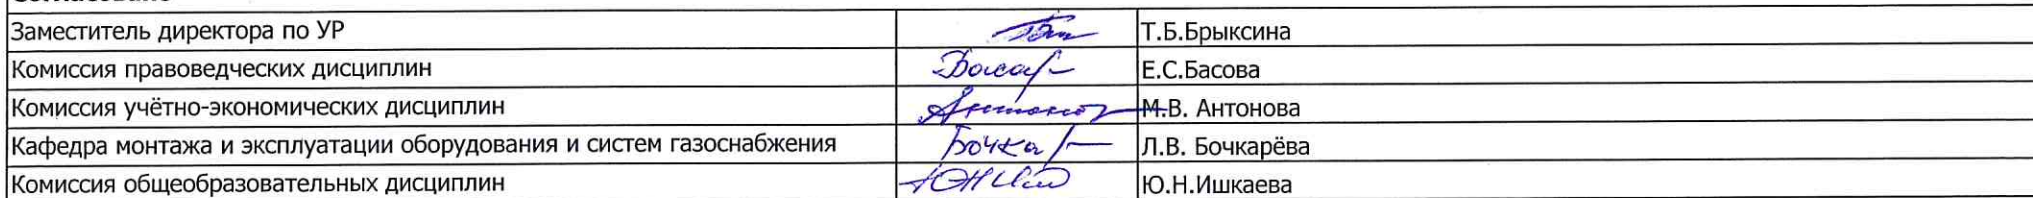 Заместитель директора по УР Т.Б.Брыксина
Комиссия правоведческих дисциплин Е.С.Басова
Комиссия учётно-экономических дисциплин М.В. Антонова
Кафедра монтажа и эксплуатации оборудования и систем газоснабжения Бочка Л.В. Бочкарёва
Комиссия общеобразовательных дисциплин Ю.Н.Ишкаева